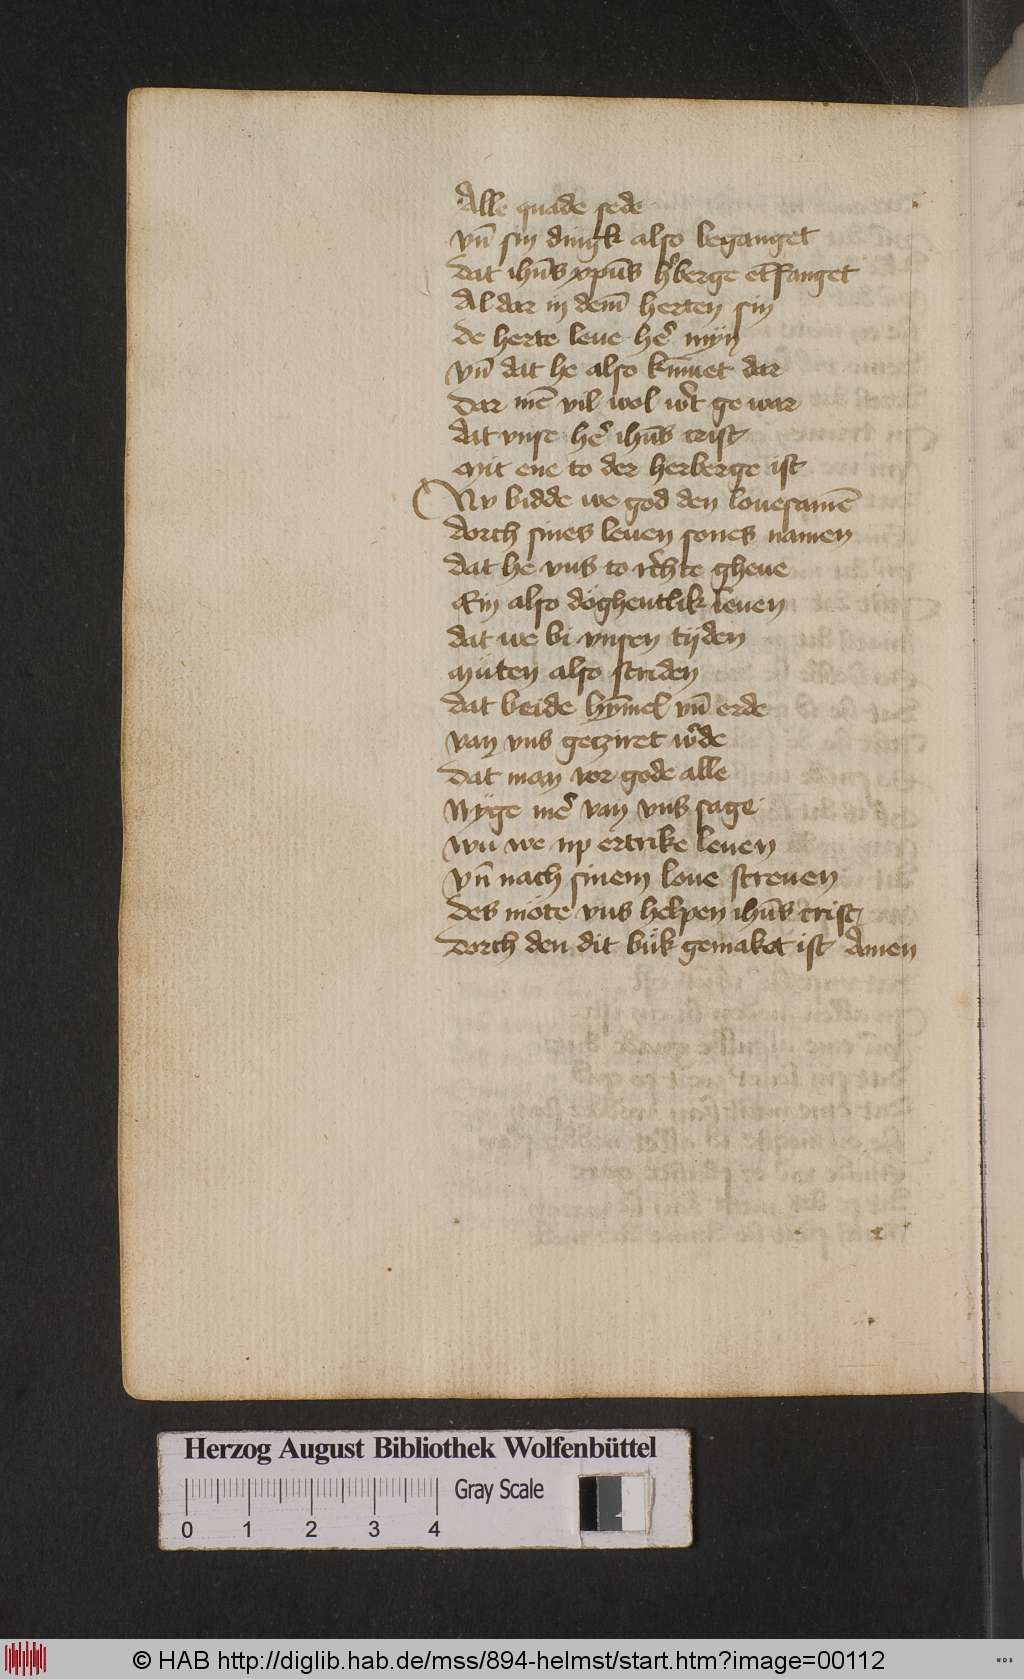 Alle quade sede
vn̄ sin dingk also beganget
dat ihūs xpūs h̛berge etfanget
Al dar in dem̄ herten sin
de herte leue he͛ myn
vn̄ dat he also kūmet dar
dar mē vil wol w̛t ge war
dat vnse he͛ ihūs crist
Mit ene to der herberge ist
Nv bidde we god den louesamē
dorch sines leuen sones namen
dat he vns to rechte gheue
Ein also döghentlik leuen
dat we bi vnsen tijden
müten also striden
dat beide hȳmel vn̄ erde
van vns getziret w̛de
dat man vor gode alle
Nyge me͛ van vns sage
wu we vp ertrike leuen
vn̄ nach sinem loue streuen
des möte vns helpen ihūs crist
dorch den dit bůk gemaket ist Amen
Herzog August Bibliothek Wolfenbüttel
Gray Scale
0 1 2 3 4
© HAB http://diglib.hab.de/mss/894-helmst/start.htm?image=00112